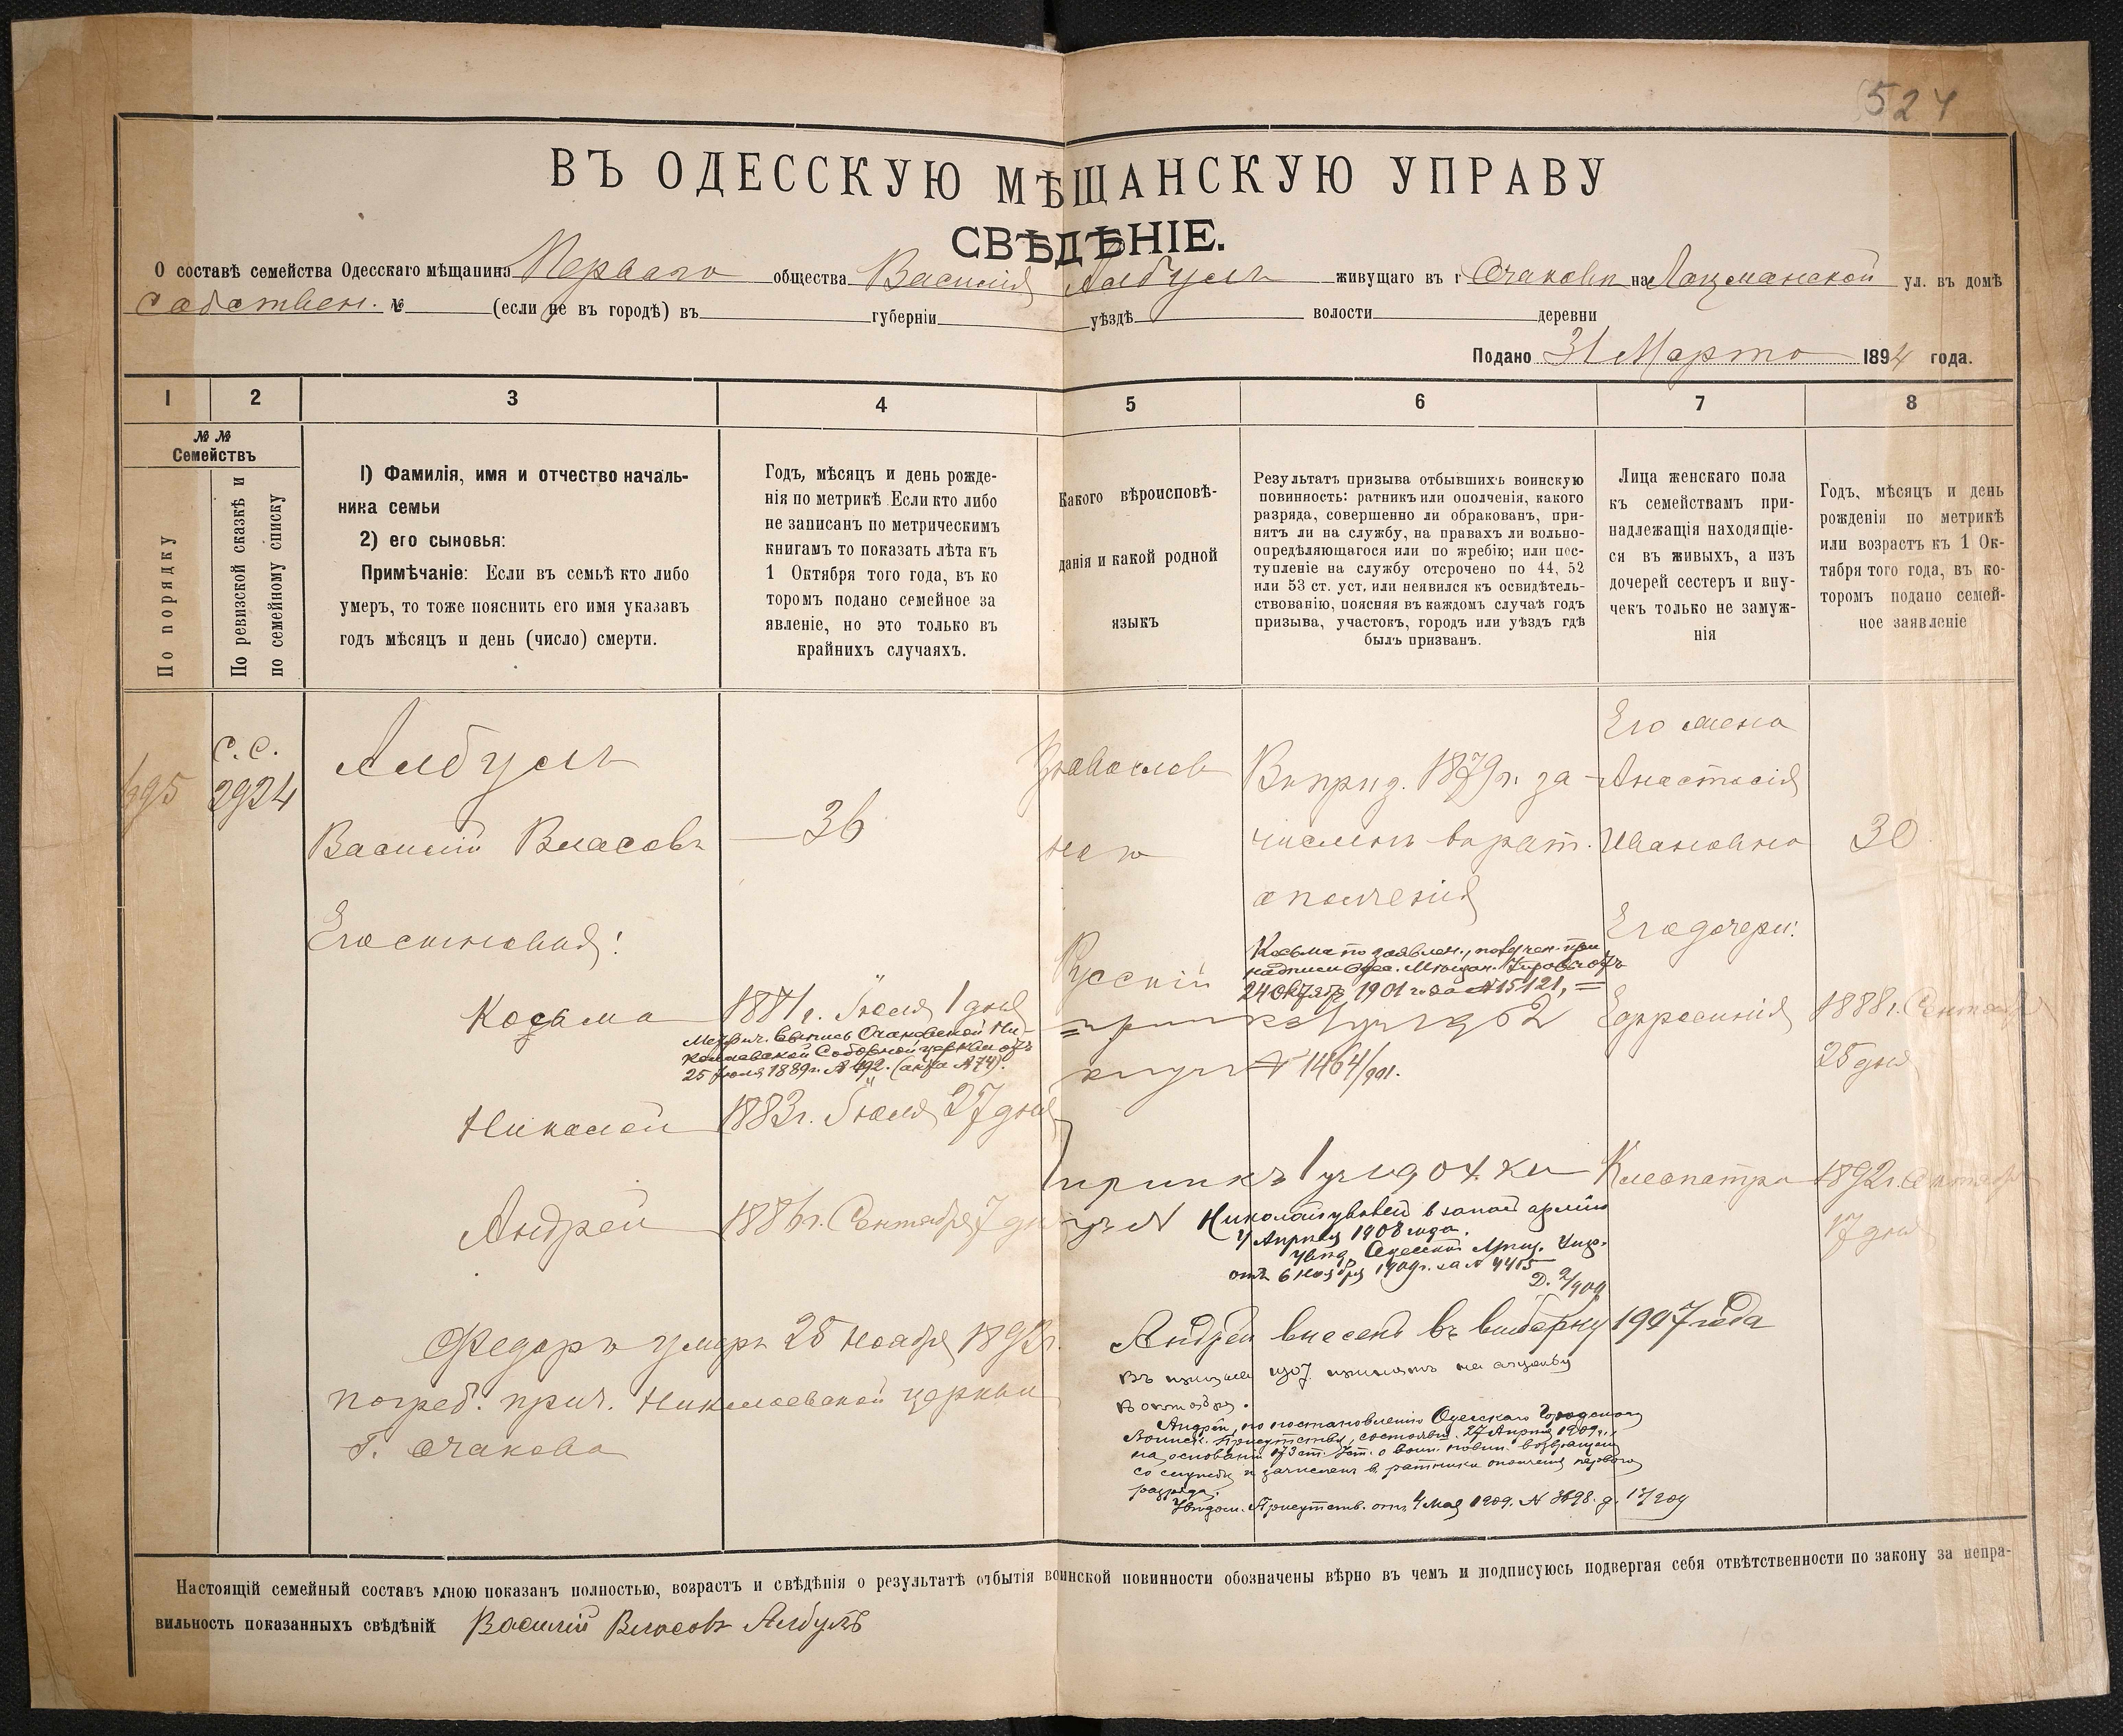 524
ВЪ ОДЕССКУЮ МѢЩАНСКУЮ УПРАВУ
СВѢДѢНІЕ.
О составѣ семейства Одесскаго мѣщанина Перваго общества Василія Албулъ живущаго въ г Очаковѣ на Лоцманской ул. въ домѣ
собствен. № (если не въ городѣ) въ губерніи уѣздѣ волости деревни
Подано 31 Марта 1894 года.
1 2 3 4 5 6 7 8
№№
Семействъ
По порядку
По ревизской сказкѣ и
по семейному списку
1) Фамилія, имя и отчество началь-
ника семьи
2) его сыновья:
Примѣчаніе: Если въ семьѣ кто либо
умеръ, то тоже пояснить его имя указавъ
годъ мѣсяцъ и день (число) смерти.
Годъ, мѣсяцъ и день рожде-
нія по метрикѣ Если кто либо
не записанъ по метрическимъ
книгамъ то показать лѣта къ
1 Октября того года, въ ко
торомъ подано семейное за
явленіе, но это только въ
крайнихъ случаяхъ.
Какого вѣроисповѣ-
данія и какой родной
языкъ
Результатъ призыва отбывшихъ воинскую
повинность: ратникъ или ополченія, какого
разряда, совершенно ли обракованъ, при-
нятъ ли на службу, на правахъ ли вольно-
опредѣляющагося или по жребію; или пос-
тупленіе на службу отсрочено по 44, 52
или 53 ст. уст. или неявился къ освидѣтель-
ствованію, поясняя въ каждомъ случаѣ годъ
призыва, участокъ, городъ или уѣздъ гдѣ
былъ призванъ.
Лица женскаго пола
къ семействамъ при-
надлежащія находящіе-
ся въ живыхъ, а изъ
дочерей сестеръ и вну-
чекъ только не замуж-
нія
Годъ, мѣсяцъ и день
рожденія по метрикѣ
или возрастъ къ 1 Ок-
тября того года, въ ко-
торомъ подано семей-
ное заявленіе
695
с.с.
2924
Албулъ
Василій Власовъ
36
Православ
ная
Русскій
Въ приз. 1879г. за-
численъ въ рат.
ополченія
Его жена
Анастасія
Ивановна
30
Его сыновья:
Козьма 1881г. Іюля 1 дня
Метрич. выпись Очаковской Ни-
колаевской Соборной церкви отъ
25 Іюля 1889г. № 492. (актъ №74).
Козьма по заявлен., получен. при
надписи Одес. Мѣщан. Управы отъ
24 Октября 1901 г. за №15121, =
№ 1464/901.
Его дочери:
Ефросинія 1888г. Сентября
25 дня
Николай 1883г. Іюля 27 дня
Николай уволен въ запас арміи
Апрѣля 1908 года.
Увѣд. Одесской Мѣщ. Упр.
отъ 6 Ноября 1909г. за № 4415
Д. 2/909
Клеопатра 1892г. Октября
17 дня
Андрей 1886г. Сентября 7 дня
Федоръ умеръ 25 Ноября 1893г.
погреб. прич. Николаевской церкви
г. Очакова
Андрей внесенъ въ выборку 1907 года
въ 1907 принятъ на службу
Андрей, по постановленію Одесскаго Городского
Воинск. Присутствія, состоявш. 27 Апрѣля 1909г.,
на основаніи 173 ст. Уст. о воин. повин. возвращенъ
со службы и зачисленъ въ ратники ополченія перваго
разряда.
Увѣдом. Присутств. отъ 4 Мая 1909. № 3698. д.
Настоящій семейный составъ мною показанъ полностью, возрастъ и свѣдѣнія о результатѣ отбытія воинской повинности обозначены вѣрно въ чемъ и подписуюсь подвергая себя отвѣтственности по закону за непра-
вильность показанныхъ свѣдѣній Василій Власовъ Албулъ